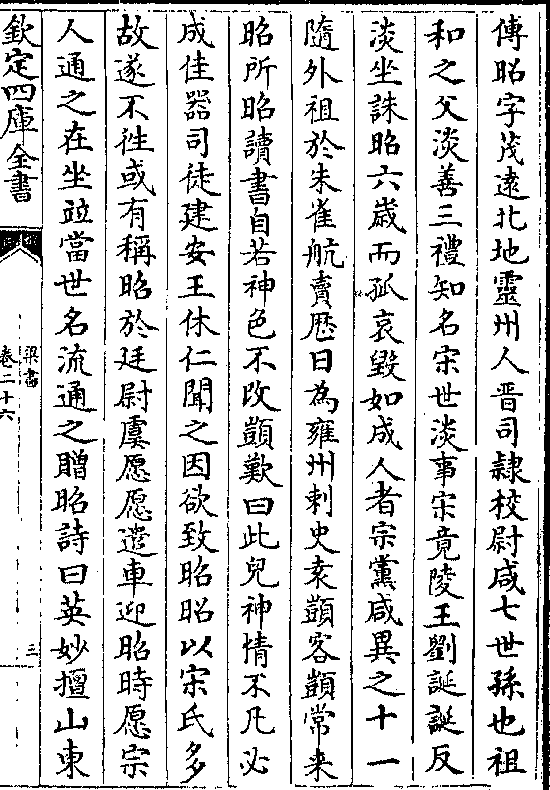 傳昭字茂逺北地靈州人晋司隸校尉咸七世孫也祖
和之父淡善三禮知名宋世淡事宋竟陵王劉誕誕反
淡坐誅昭六嵗而孤哀毀如成人者宗黨咸異之十一
隨外祖於朱雀航賣厯日為雍州刺史袁顗客顗常来
昭所昭讀書自若神色不改顗歎曰此兒神情不凡必
成佳器司徒建安王休仁聞之因欲致昭昭以宋氏多
故遂不徃或有稱昭於廷尉虞愿愿遣車迎昭時愿宗
人通之在坐竝當世名流通之贈昭詩曰英妙擅山東
欽定四庫全書
梁書
卷二十六
三